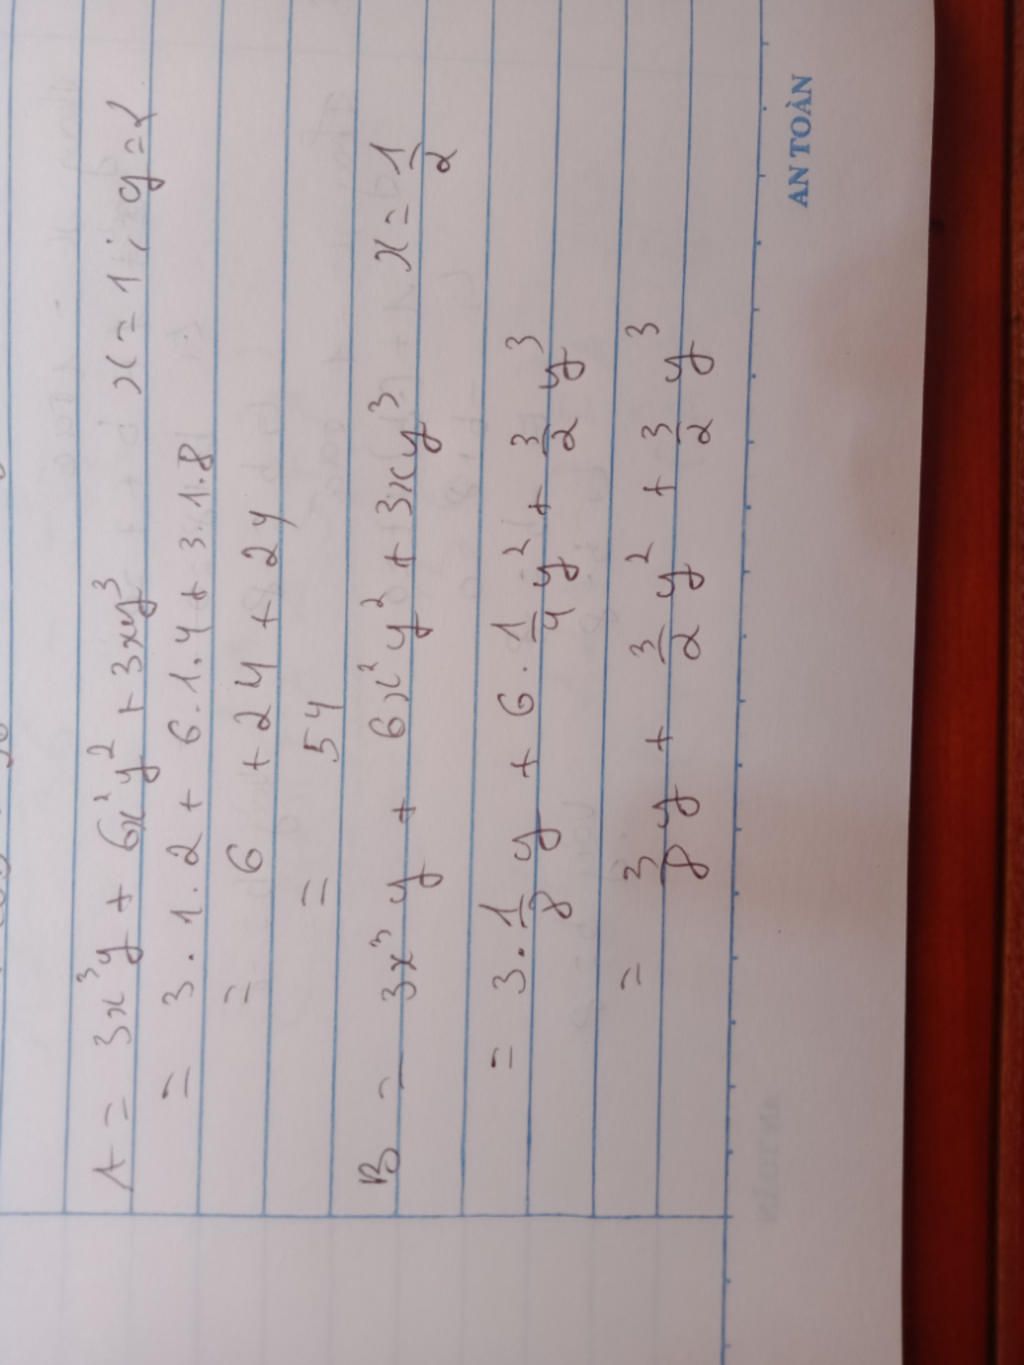 A = 3x³y + 6x²y² + 3xy³ x = 1 ; y = 2
= 3 . 1 . 2 + 6 . 1 . 4 + 3 . 1 . 8
= 6 + 24 + 24
= 54
B = 3x³y + 6x²y² + 3xy³ x = 1/2
= 3 . 1/8 y + 6 . 1/4 y² + 3/2 y³
= 3/8 y + 3/2 y² + 3/2 y³
AN TOÀN